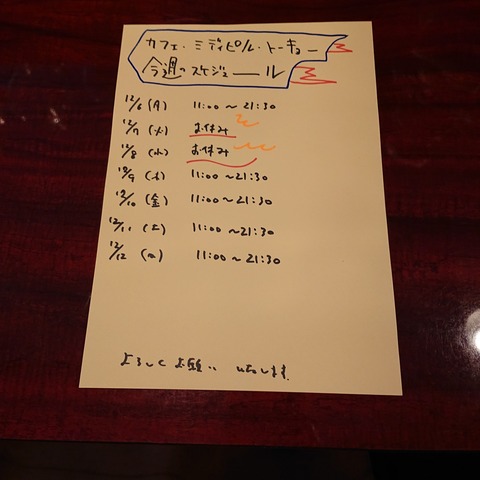 カフェ・ミディピル・トーキョー
今週のスケジュール
12/6 (月) 11:00～21:30
12/7 (火) お休み
12/8 (水) お休み
12/9 (木) 11:00～21:30
12/10 (金) 11:00～21:30
12/11 (土) 11:00～21:30
12/12 (日) 11:00～21:30
よろしくお願い いたします.